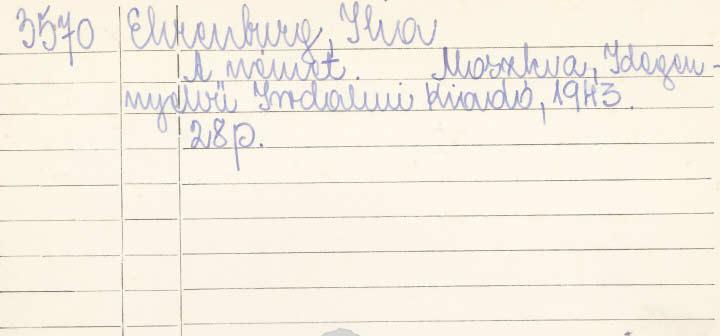 3570 Ehrenburg, Ilya
A német. Moszkva, Idegen-
nyelvü Irodalmi Kiadó, 1943.
28p.